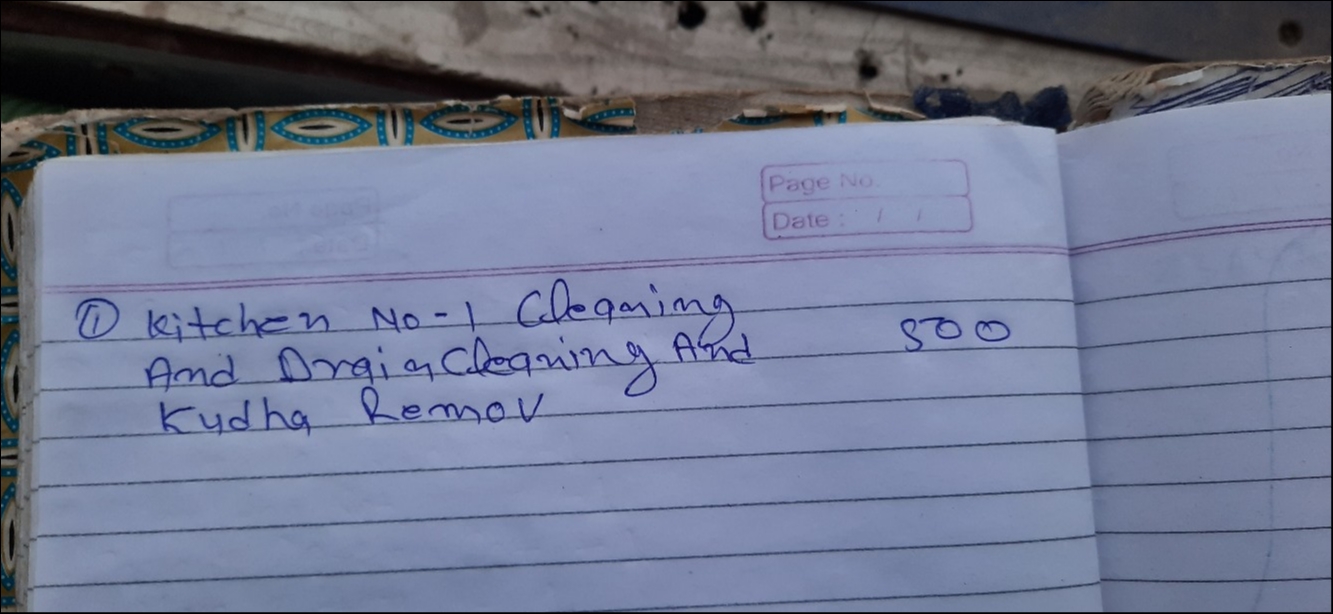 Page No.
Date : / /
① Kitchen No-1 Cleaning
And Drain Cleaning And 500
Kudha Remov